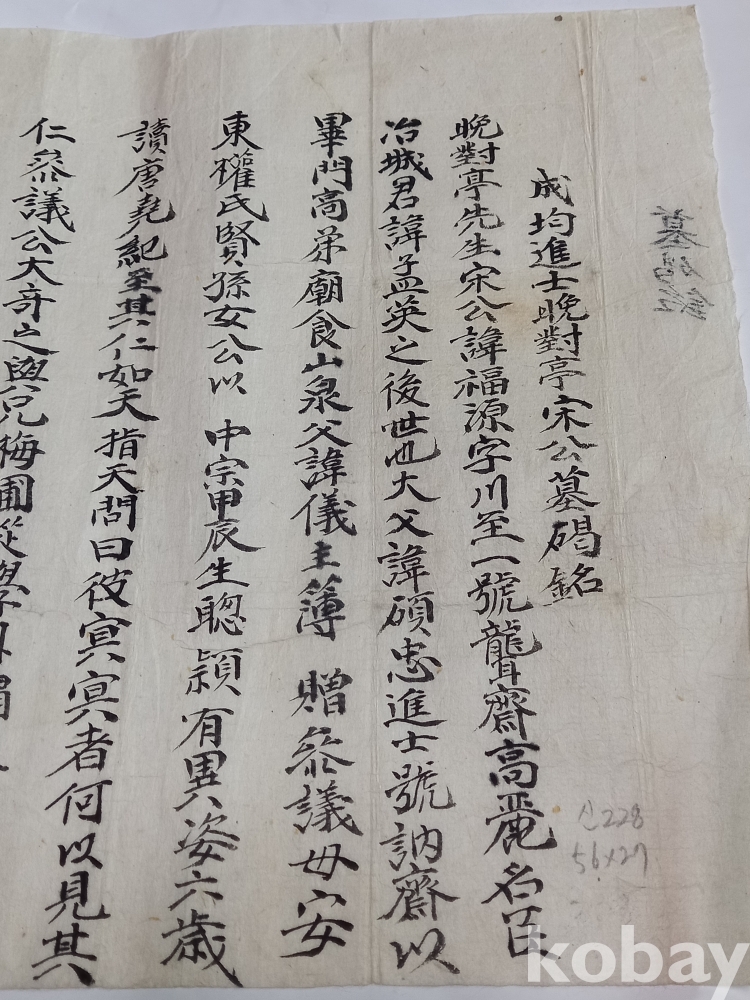 墓碣銘
成均進士晩對亭宋公墓碣銘
晩對亭先生宋公諱福源字川至一號聾齋高麗名臣
冶城君諱孟英之後世也大父諱碩忠進士號訥齋以
畢門高弟廟食山泉父諱儀主簿 贈叅議母安
東權氏賢孫女公以 中宗甲辰生聰穎有異姿六歲
讀唐堯紀至其仁如天指天問曰彼冥冥者何以見其
仁叅議公大奇之與台兄梅圃從學
신228
56x27
kobay